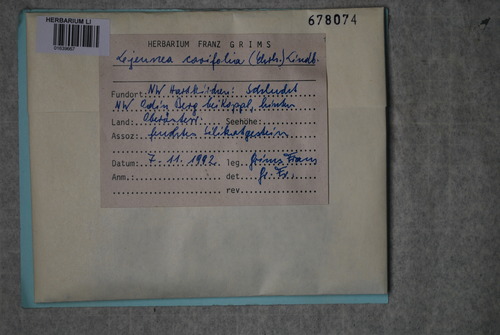 HERBARIUM LI
678074
HERBARIUM FRANZ GRIMS
Lejeunea cavifolia (Ehrh.) Lindb.
Fundort: NW Hartkirchen: Schlucht
NW
Land: Oberösterr. Seehöhe:
Assoz: feuchtem Silikatgestein
Datum: 7.11.1992 leg. Grims Franz
Anm.: det. Gr. Fr.
rev.